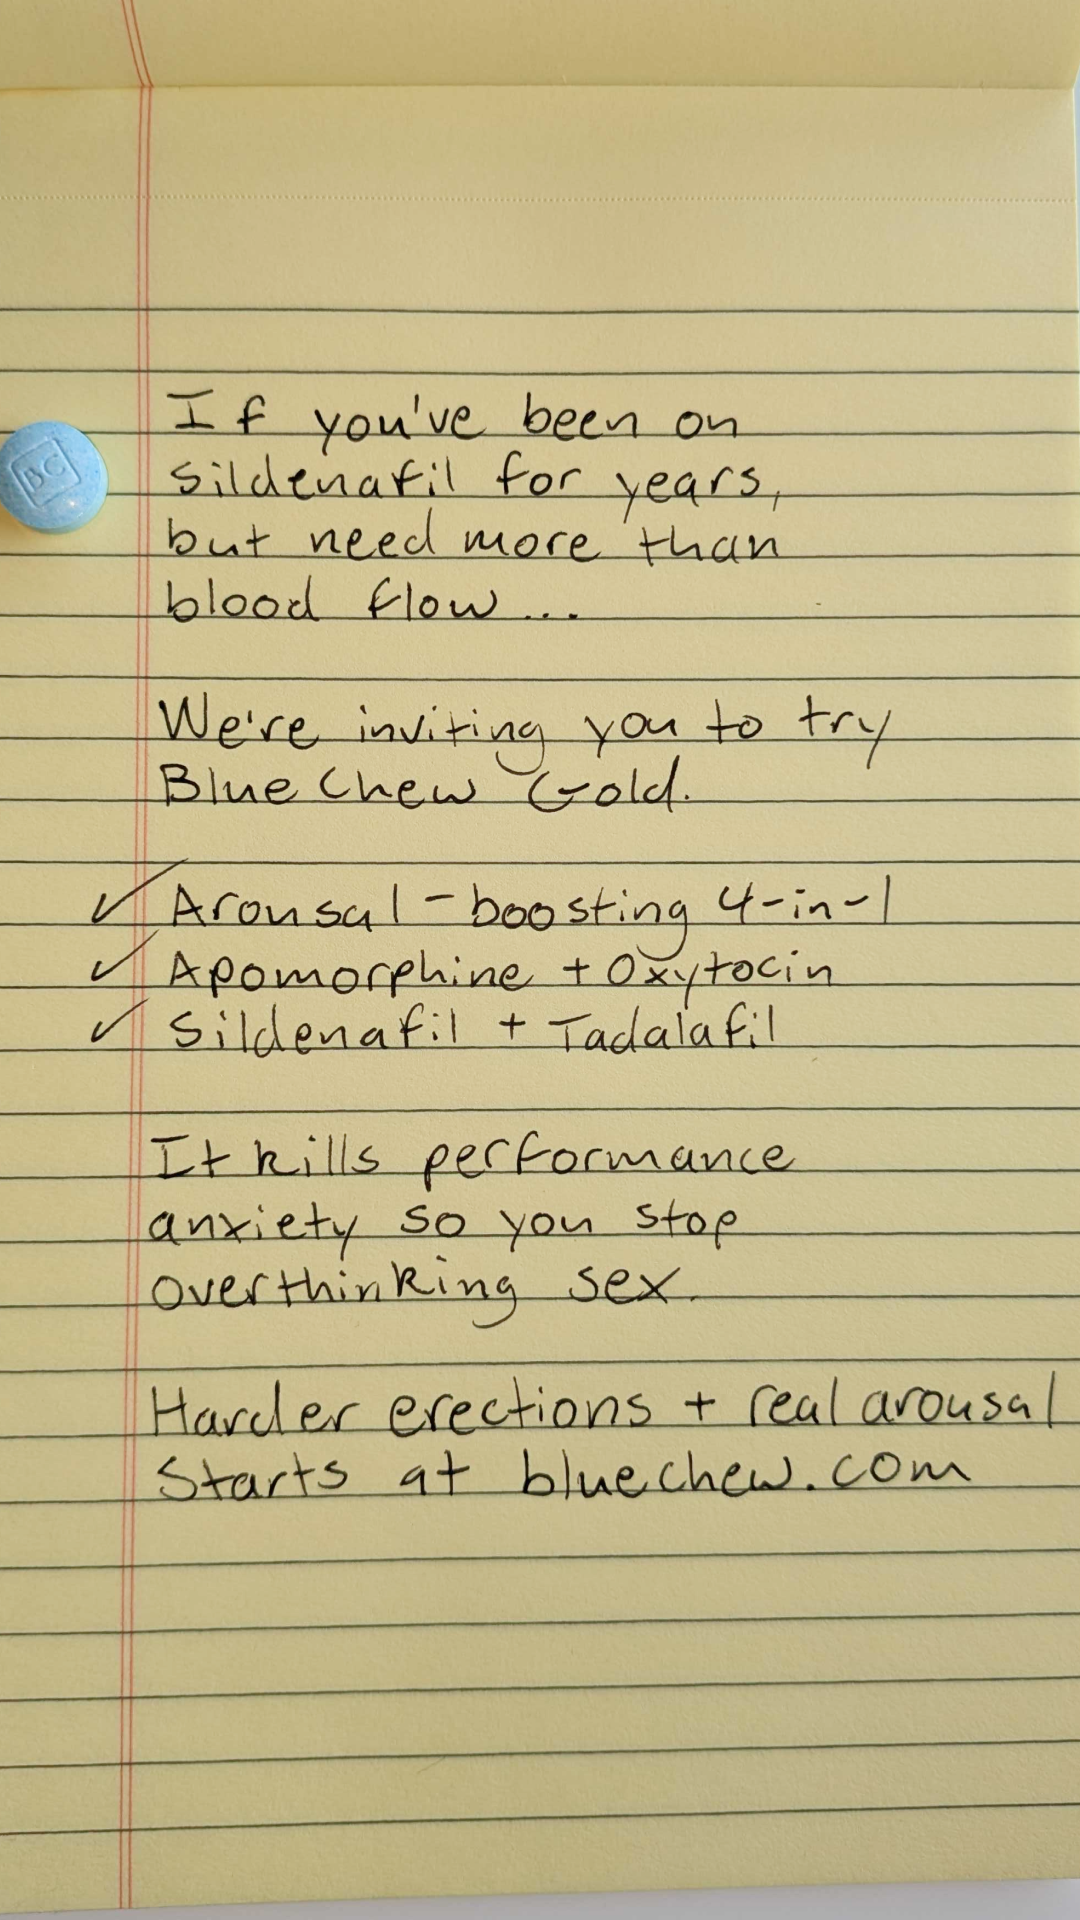 BC
If you've been on
sildenafil for years,
but need more than
blood flow...
We're inviting you to try
BlueChew Gold.
✓ Arousal-boosting 4-in-1
✓ Apomorphine + Oxytocin
✓ Sildenafil + Tadalafil
It kills performance
anxiety so you stop
overthinking sex.
Harder erections + real arousal
Starts at bluechew.com